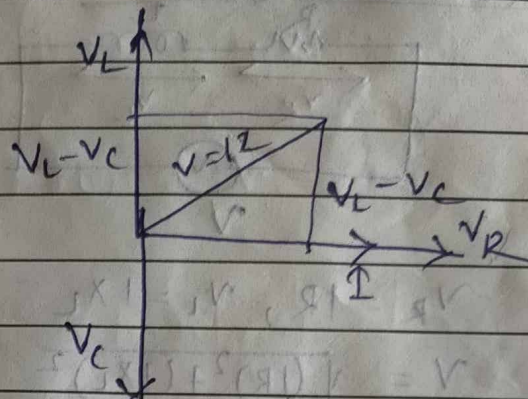 V_L
V_L - V_C
V = 12
V_L - V_C
V
V_R
I
V_C